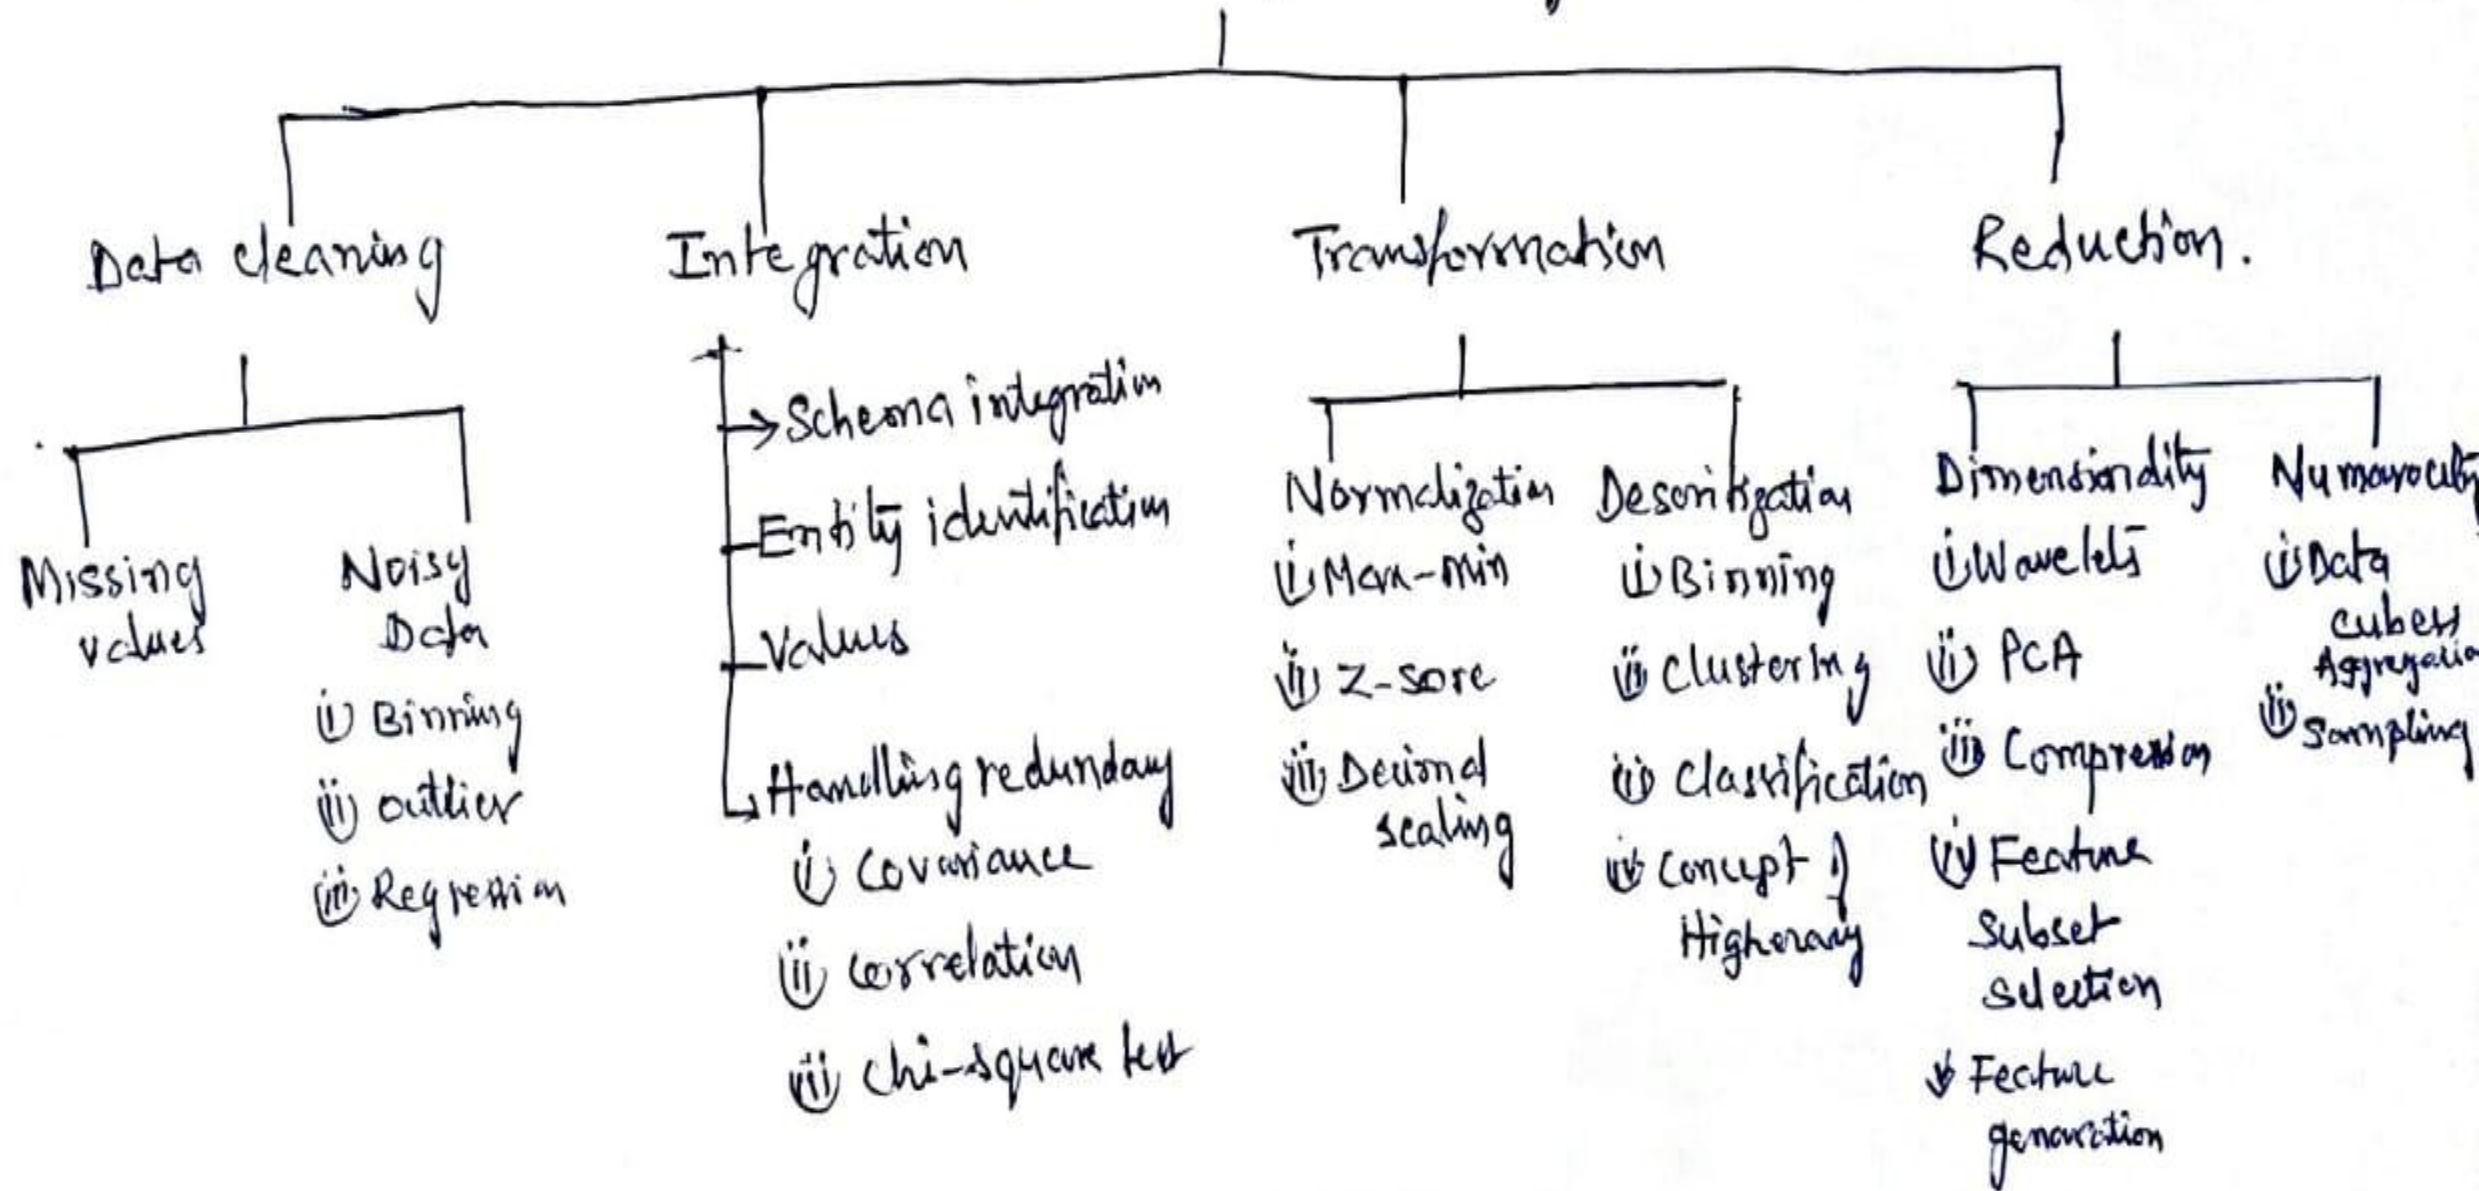 Data cleaning
Missing
values
Noisy
Data
i) Binning
ii) outlier
iii) Regression
Integration
Schema integration
Entity identification
Values
Handling redundany
i) Covariance
ii) correlation
iii) chi-square test
Transformation
Normalization
i) Max-min
ii) Z-sore
iii) Decimal
scaling
Descritization
i) Binning
ii) clustering
iii) classification
iv) concept of
Higherary
Reduction.
Dimensionality
i) Wavelets
ii) PCA
iii) Compression
iv) Feature
Subset
selection
v Feature
genaration
Numarocity
i) Data
cubess
Aggregatio
ii) Sampling